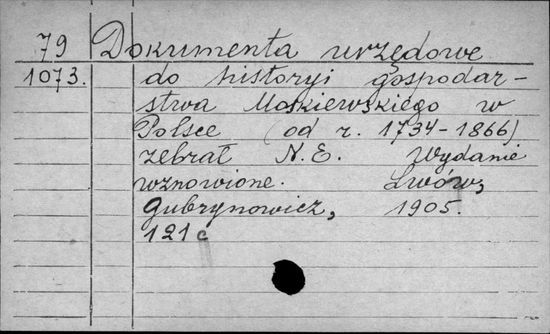 79 Dokumenta urzędowe
1073. do historyi gospodar-
stwa Moskiewskiego w
Polsce (od r. 1734-1866)
zebrał N.E. Wydanie
wznowione. Lwów,
Gubrynowicz, 1905.
121 c